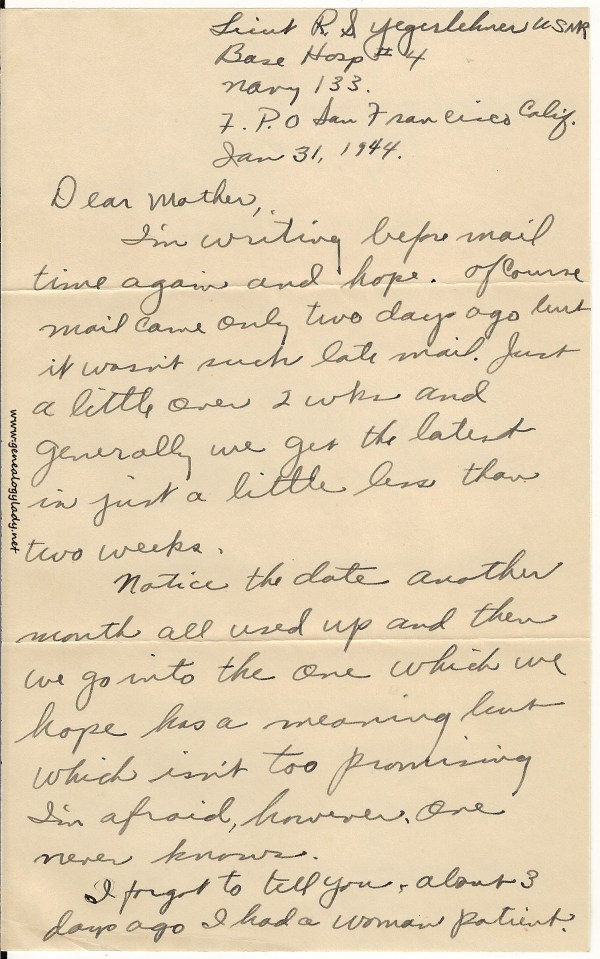 Lieut R. S. Yegerlehner USNR
Base Hosp # 4
Navy 133.
F. P. O San Francisco Calif.
Jan 31, 1944.
Dear Mother,
I'm writing before mail
time again and hope. Of course
mail came only two days ago but
it wasn't such late mail. Just
a little over 2 wks and
generally we get the latest
in just a little less than
two weeks.
Notice the date another
month all used up and then
we go into the one which we
hope has a meaning but
which isn't too promising
I'm afraid, however, one
never knows.
I forgot to tell you, about 3
days ago I had a woman patient.
www.genealogylady.net